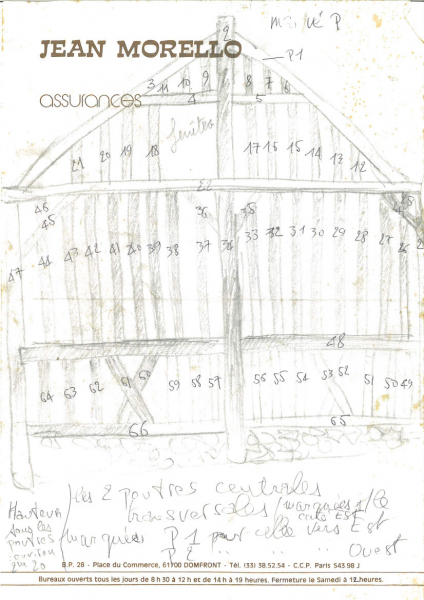 marqué P
JEAN MORELLO
P1
2
3 11 10 9 8 7 6
4 5
assurances
fenêtre
21 20 19 18 17 16 15 14 13 12
22
46 36 35
45
47 44 43 42 41 40 39 38 37 34 33 32 31 30 29 28 27 26
48
64 63 62 61 60 59 58 57 56 55 54 53 52 51 50 49
66 65
les 2 poutres centrales
transversales / marquées 1/
côté EST
marquées P1 pour celle vers Est
P2 " " " Ouest
Hauteur
sous les
poutres
environ
2m 20
B.P. 28 - Place du Commerce, 61700 DOMFRONT - Tél. (33) 38.52.54 - C.C.P. Paris 543 98 J
Bureaux ouverts tous les jours de 8 h 30 à 12 h et de 14 h à 19 heures. Fermeture le Samedi à 12 heures.